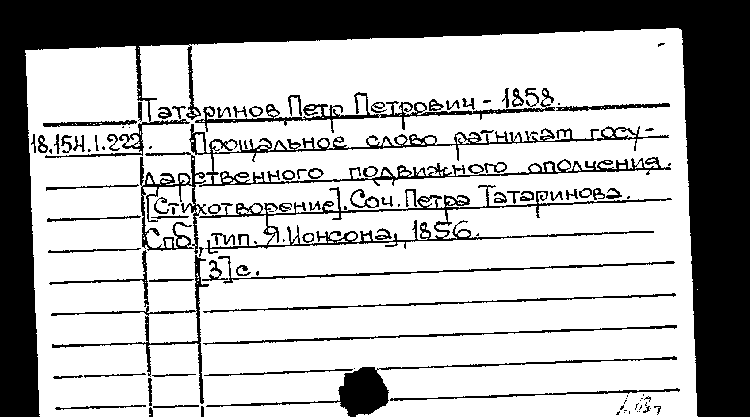 Татаринов, Петр Петрович, - 1858.
18.154.1.222. Прощальное слово ратникам госу-
дарственного подвижного ополчения.
[Стихотворение]. Соч. Петра Татаринова.
Спб., тип. Я. Ионсона, 1856.
[3] с.